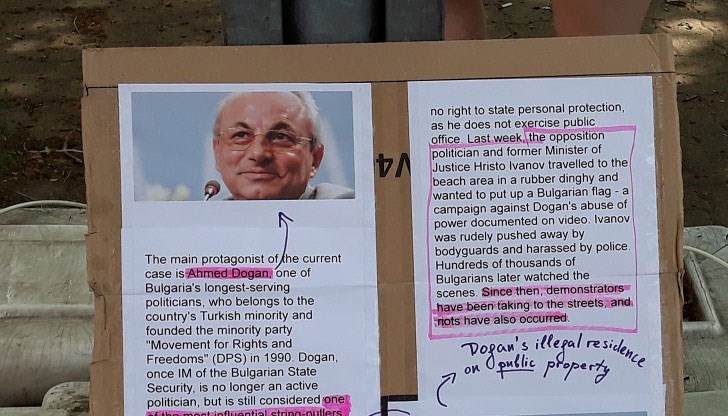 The main protagonist of the current
case is Ahmed Dogan, one of
Bulgaria's longest-serving
politicians, who belongs to the
country's Turkish minority and
founded the minority party
"Movement for Rights and
Freedoms" (DPS) in 1990. Dogan,
once IM of the Bulgarian State
Security, is no longer an active
politician, but is still considered one
of the most influential string-pullers
V4
no right to state personal protection,
as he does not exercise public
office. Last week, the opposition
politician and former Minister of
Justice Hristo Ivanov travelled to the
beach area in a rubber dinghy and
wanted to put up a Bulgarian flag - a
campaign against Dogan's abuse of
power documented on video. Ivanov
was rudely pushed away by
bodyguards and harassed by police.
Hundreds of thousands of
Bulgarians later watched the
scenes. Since then, demonstrators
have been taking to the streets, and
riots have also occurred.
Dogan's illegal residence
on public property